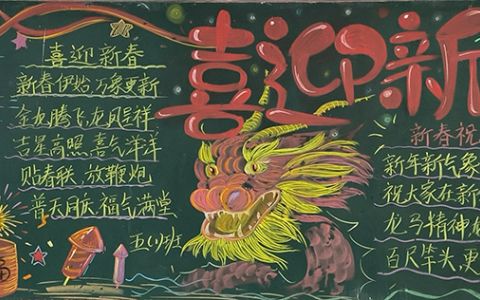 喜迎新
喜迎新春
新春伊始,万象更新
金龙腾飞,龙凤呈祥
吉星高照,喜气洋洋
贴春联,放鞭炮
普天同庆,福气满堂
五(1)班
新春祝
新年新气象
祝大家在新
龙马精神
百尺竿头,更